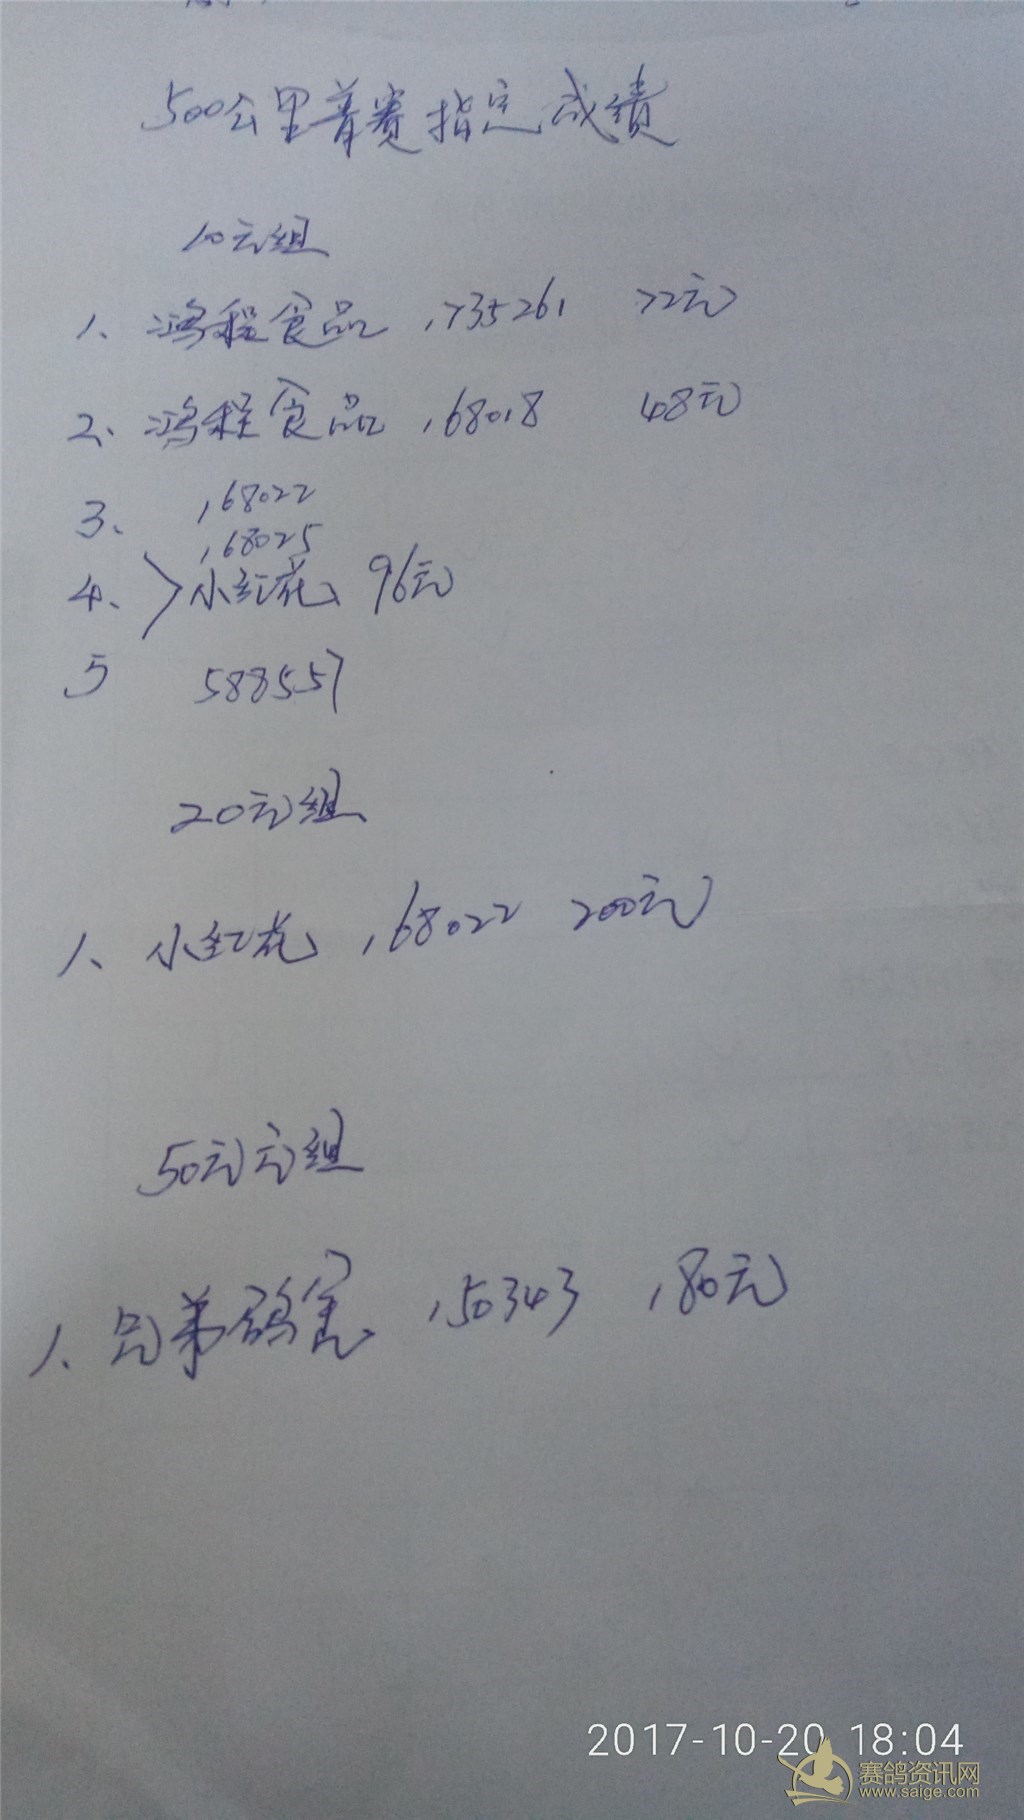 500公里普赛指定成绩
10元组
1、鸿程食品 1735261 72元
2、鸿程食品 168018 48元
3、 168022
168025
4、 小红花 96元
5 588557
20元组
1、小红花 168022 200元
50元元组
1、兄弟鸽舍 150343 180元
2017-10-20 18:04
赛鸽资讯网
www.saige.com